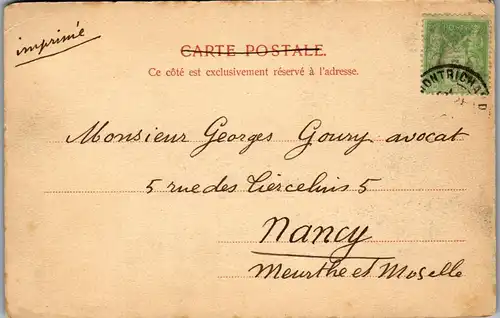 imprimé
CARTE POSTALE.
Ce côté est exclusivement réservé à l'adresse.
MONTRICHARD
Monsieur Georges Goury avocat
5 rue des Tiercelins 5
Nancy
Meurthe et Moselle